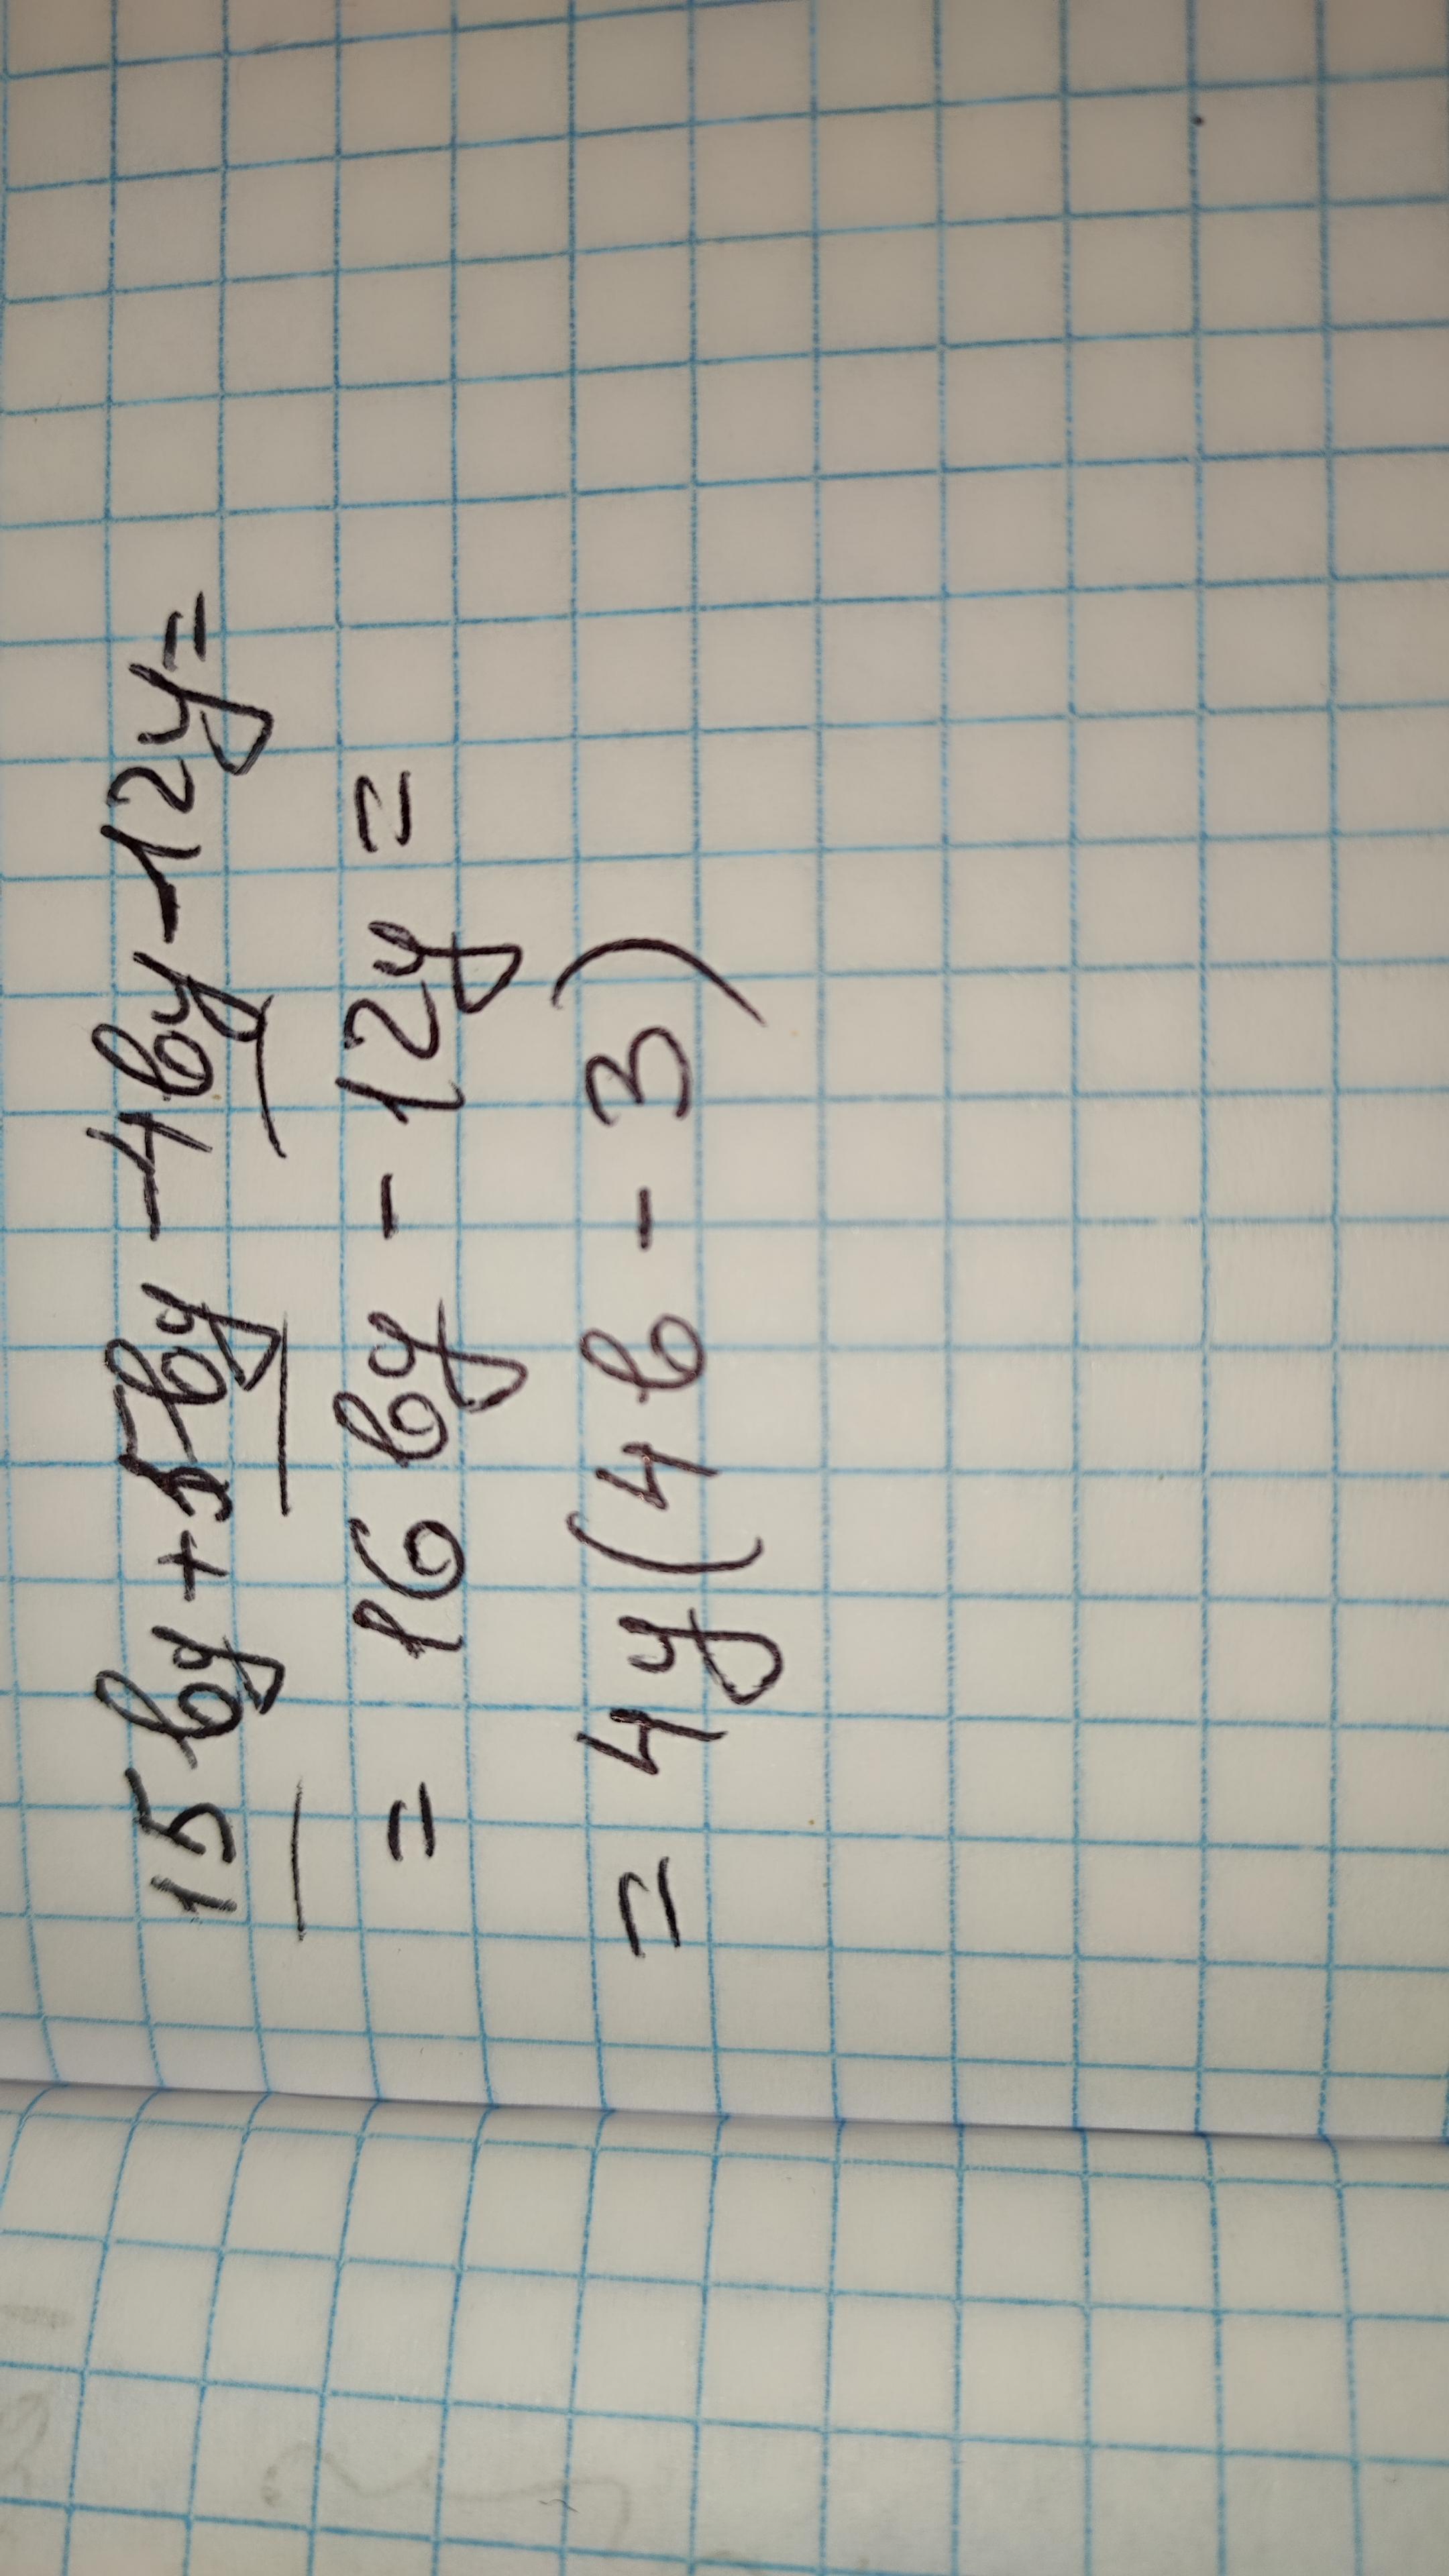 15 by + 5 by - 4 by - 12 y =
= 16 by - 12 y =
= 4 y (4 b - 3)